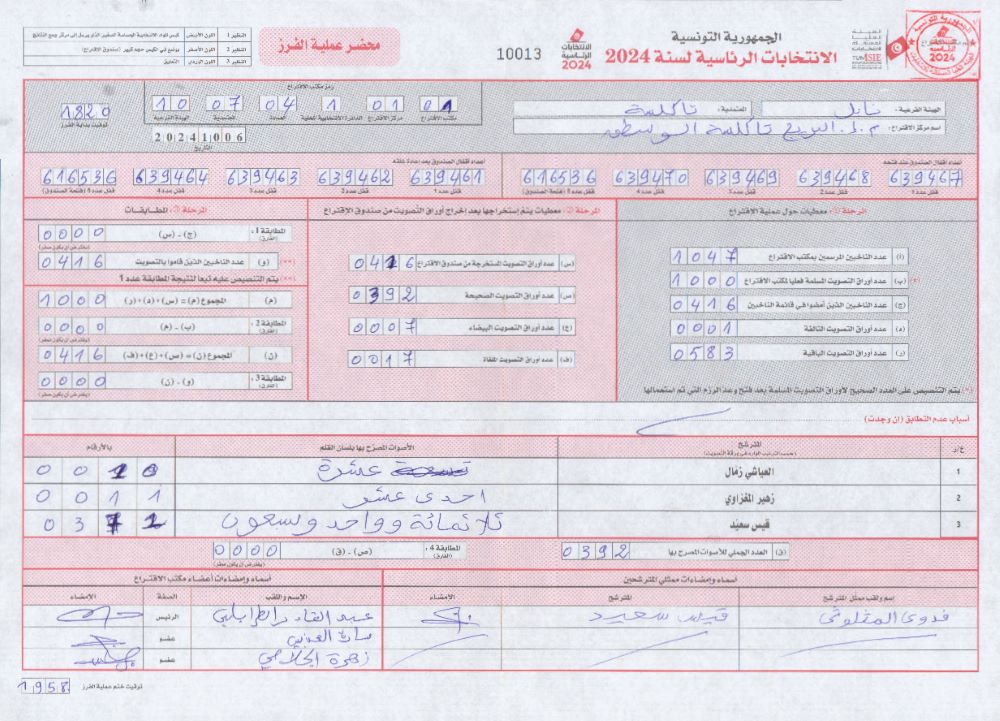 الجمهورية التونسية
الانتخابات الرئاسية لسنة 2024
الانتخابات الرئاسية 2024
10013
محضر عملية الفرز
النظير 1 اللون الأبيض
النظير 2 اللون الأصفر
النظير 3 اللون الوردي التعليق
الهيئة الفرعية: نابل المعتمدية: تاكلسة
اسم مركز الاقتراع: م.إ. البريج تاكلسة الوسطى
رمز مكتب الاقتراع
01 01 1 04 07 10
مكتب الاقتراع مركز الاقتراع الدائرة الانتخابية المحلية العمادة المعتمدية الهيئة الفرعية
20241006
التاريخ
1820
توقيت بداية الفرز
أعداد أقفال الصندوق عند فتحه
639467 639468 639469 639470 616536
قفل عدد 1 قفل عدد 2 قفل عدد 3 قفل عدد 4 قفل عدد 5 (فتحة الصندوق)
أعداد أقفال الصندوق بعد إعادة غلقه
639461 639462 639463 639464 616536
قفل عدد 1 قفل عدد 2 قفل عدد 3 قفل عدد 4 قفل عدد 5 (فتحة الصندوق)
المرحلة 1: معطيات حول عملية الاقتراع
(أ) عدد الناخبين المرسمين بمكتب الاقتراع 1047
(ب) عدد أوراق التصويت المسلمة فعليا لمكتب الاقتراع 1000 (*)
(ج) عدد الناخبين الذين أمضوا في قائمة الناخبين 0416
(د) عدد أوراق التصويت التالفة 0001
(ر) عدد أوراق التصويت الباقية 0583
(*) يتم التنصيص على العدد الصحيح لأوراق التصويت المسلمة بعد فتح وعد الرزم التي تم استعمالها
المرحلة 2: معطيات يتم إستخراجها بعد إخراج أوراق التصويت من صندوق الاقتراع
(س) عدد أوراق التصويت المستخرجة من صندوق الاقتراع 0416
(ص) عدد أوراق التصويت الصحيحة 0392
(ع) عدد أوراق التصويت البيضاء 0007
(ف) عدد أوراق التصويت الملغاة 0017
المرحلة 3: المطابقات
المطابقة 1: (الفارق) (ج) - (س) 0000
(يفترض أن يكون صفر)
(**) (و) عدد الناخبين الذين قاموا بالتصويت 0416
(**) يتم التنصيص عليه تبعا لنتيجة المطابقة عدد 1
(م) المجموع (م) = (س) + (د) + (ر) 1000
المطابقة 2: (الفارق) (ب) - (م) 0000
(يفترض أن يكون صفر)
(ن) المجموع (ن) = (ص) + (ع) + (ف) 0416
المطابقة 3: (الفارق) (و) - (ن) 0000
(يفترض أن يكون صفر)
أسباب عدم التطابق (إن وجدت)
ع/ر المترشح الأصوات المصرّح بها بلسان القلم بالأرقام
(حسب الترتيب الوارد في ورقة التصويت)
1 العياشي زمال عشرة 0010
2 زهير المغزاوي احدى عشر 0011
3 قيس سعيّد ثلاثمائة وواحد وسبعون 0371
(ق) العدد الجملي للأصوات المصرح بها 0392
المطابقة 4: (الفارق) (ص) - (ق) 0000
(يفترض أن يكون صفر)
أسماء وإمضاءات ممثلي المترشحين
اسم ولقب ممثل المترشح المترشح الإمضاء
فدوى المثلوثي قيس سعيد
أسماء وإمضاءات أعضاء مكتب الاقتراع
الإسم واللقب الصفة الإمضاء
عبد القادر الطرابلسي الرئيس
سارة العوني عضو
زهرة الجلاصي عضو
توقيت ختم عملية الفرز 1958